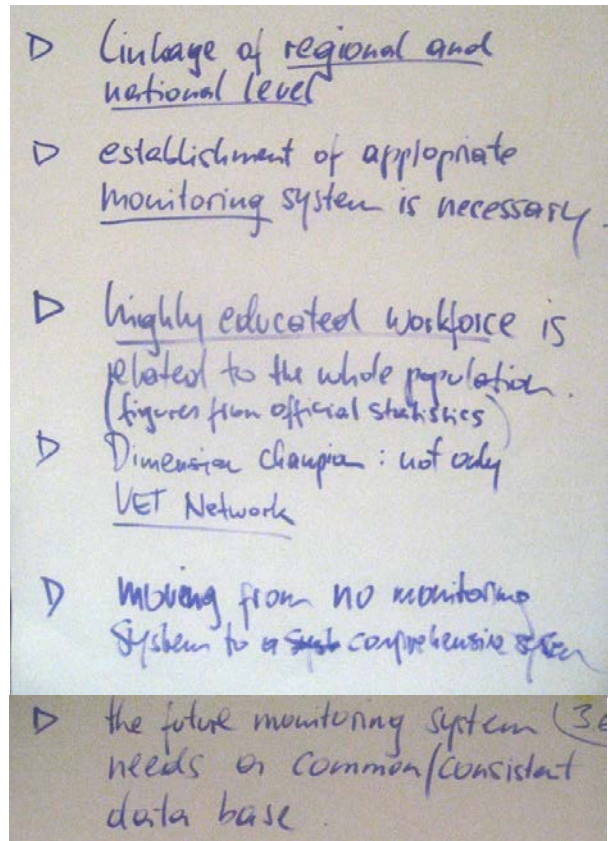 ▷ Linkage of regional and
national level
▷ establishment of applopriate
monitoring system is necessary.
▷ highly educated workforce is
related to the whole population.
(figures from official statistics)
▷ Dimension champion: not only
VET Network
▷ moving from no monitoring
system to a comprehensive system
▷ the future monitoring system (3.
needs a common/consistent
data base.